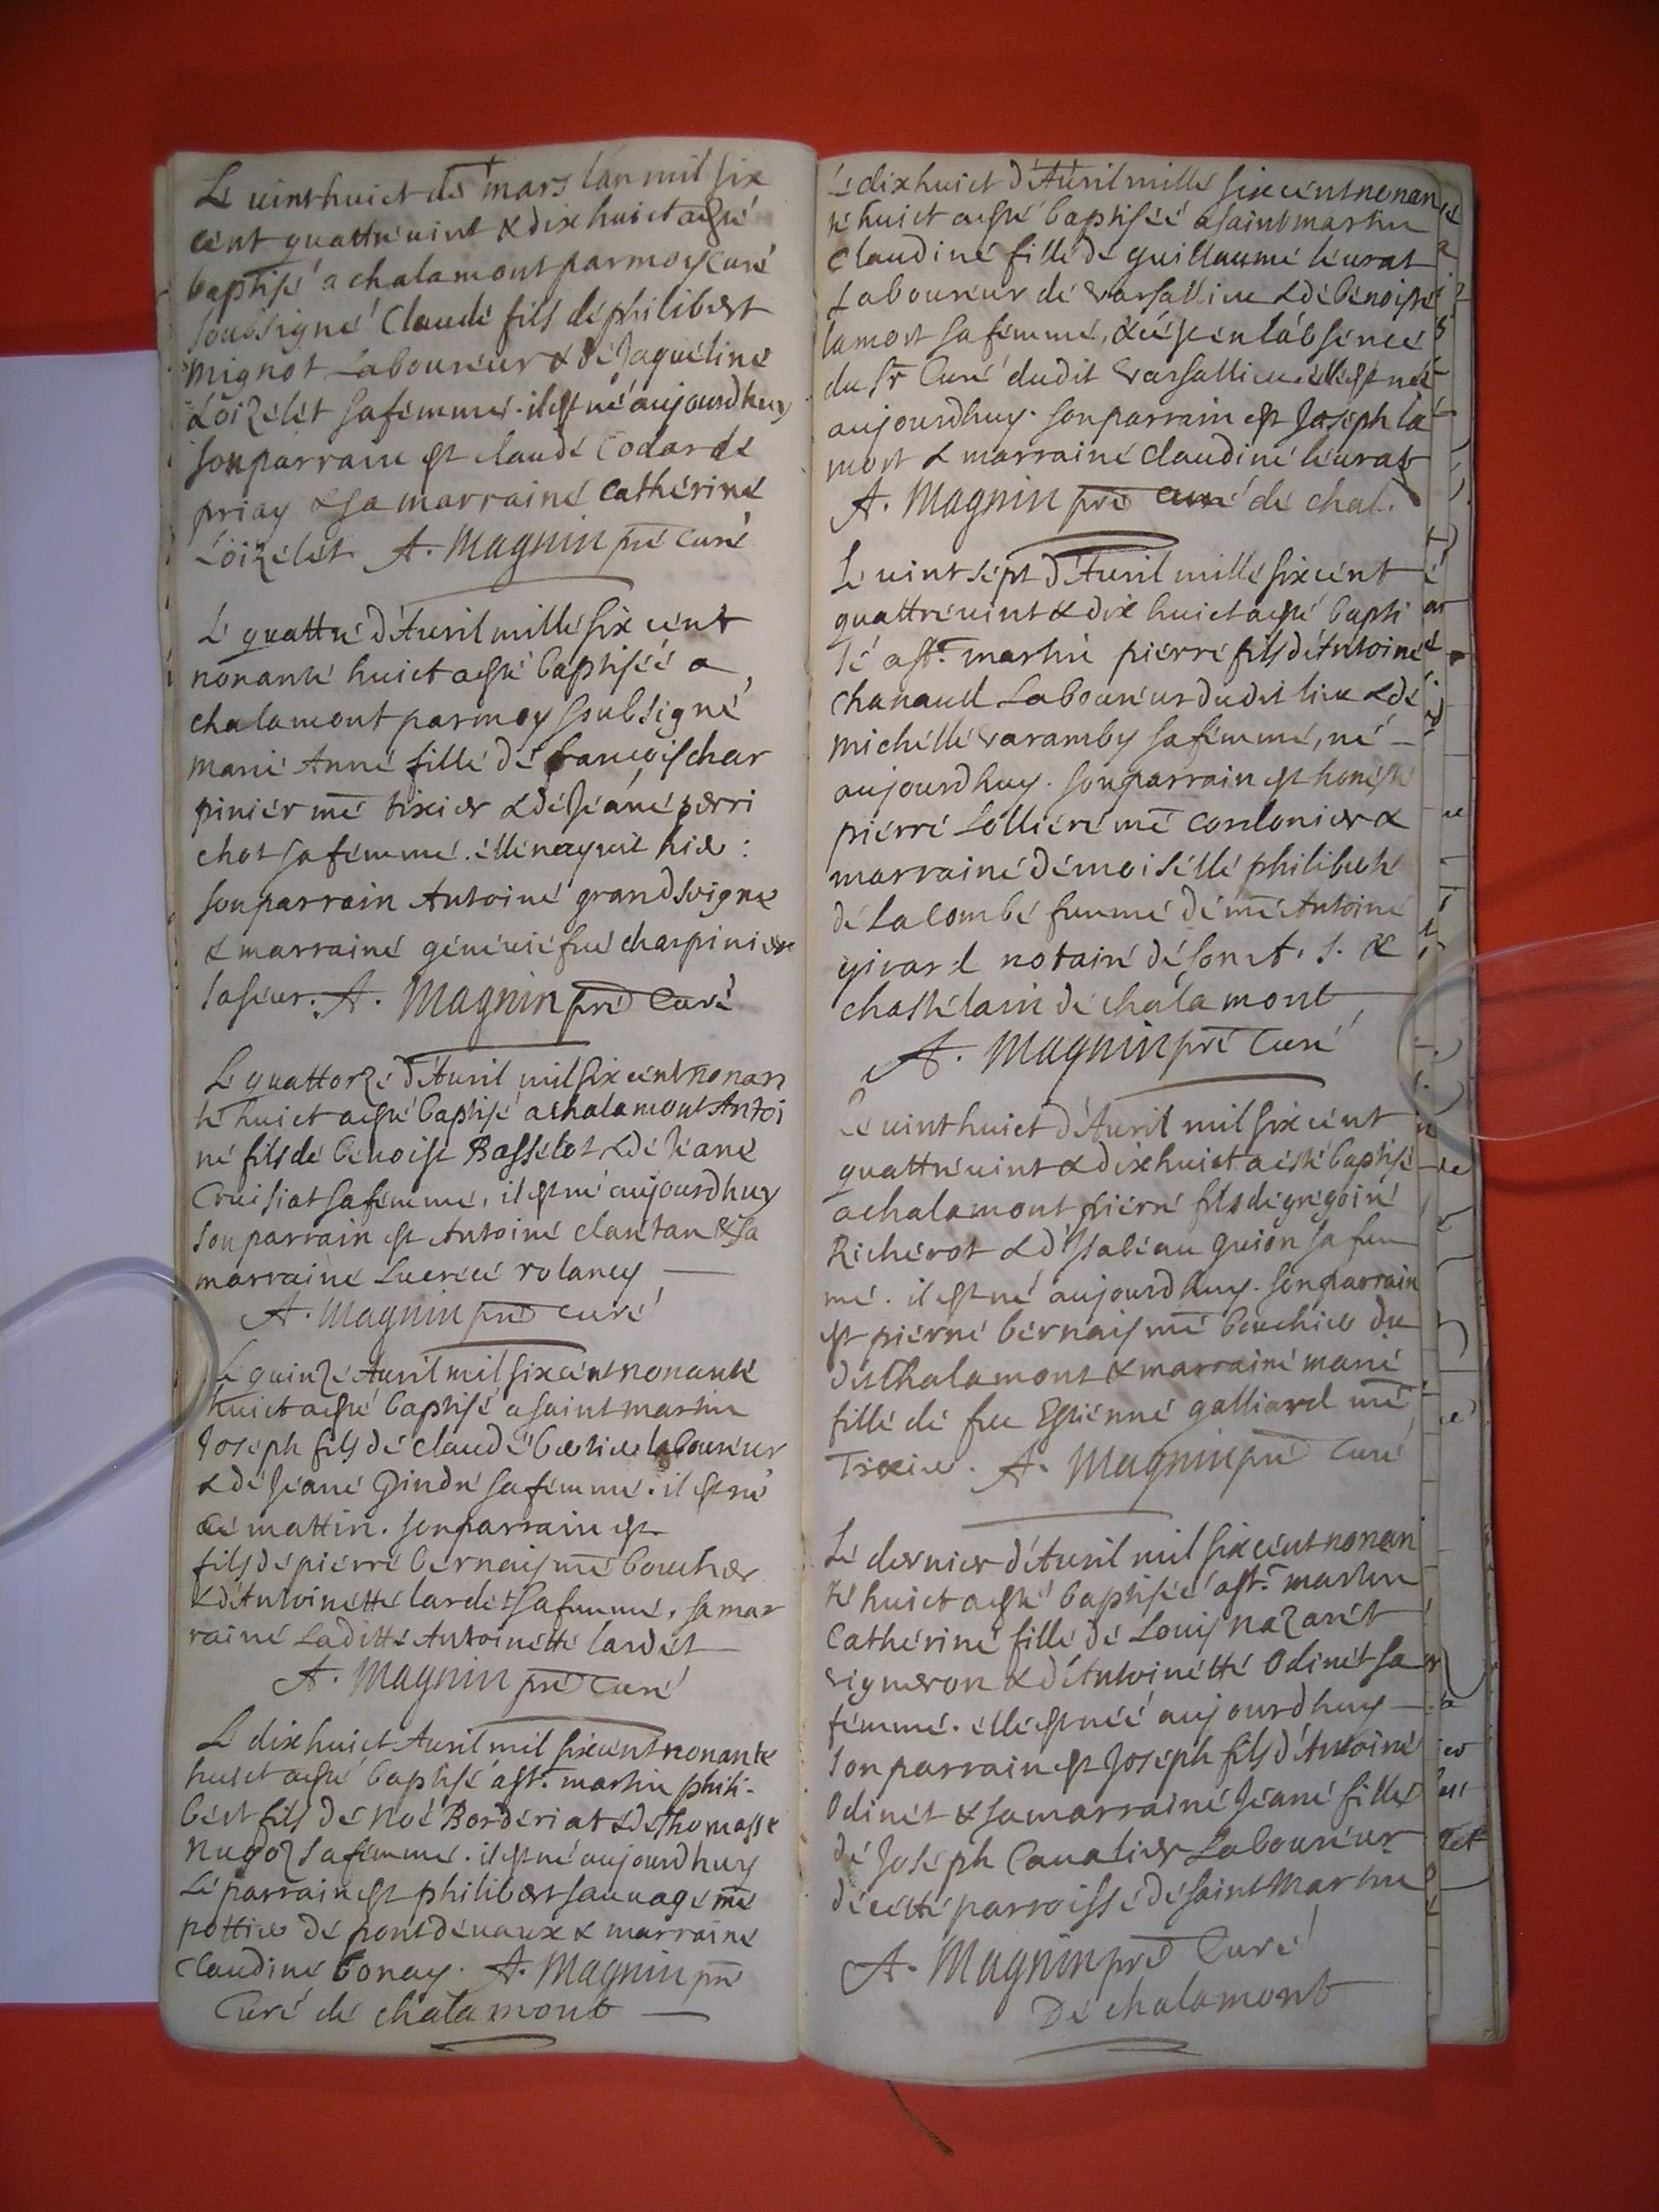 Le vint huict de mars lan mil six
cent quattre vint & dix huict a esté
baptisé a chalamont par moy curé
soubsigné Claude fils de philibert
mignot Laboureur & de Jaqueline
Loizelet sa femme. il est né aujourdhuy
son parrain est claude Codar de
priay & sa marraine Catherine
Loizelet. A. Magnin pre Curé
Le quattre d'Avril mille six cent
nonante huict a esté baptisée a
chalamont par moy soubsigné
marie Anne fille de francois char
pinier me tixier & de Jeane perri
chot sa femme. elle nayquit hier:
son parrain Antoine grand
& marraine geneviefve charpinier
sa seur. A. Magnin pre Curé
Le quattorze d'Avril mil six cent nonan
te huict a esté baptisé a chalamont Antoi
ne fils de benoist Basselot & de Jeane
Cruisiat sa femme, il est né aujourdhuy
son parrain est Antoine clantan & sa
marraine Lucrece rolancy
A. Magnin pre curé
Le quinze Avril mil six cent nonante
huict a esté baptisé a saint martin
Joseph fils de claude bertier laboureur
& de Jeane Gindre sa femme. il est né
ce mattin. son parrain est
fils de pierre bernais me boucher
& d'Antoinette lardet sa femme, sa mar
raine laditte Antoinette lardet
A. Magnin pre Curé
Le dix huict Avril mil six cent nonante
huict a esté baptisé a st. martin phili-
bert fils de Noé Borderiat & de Thomasse
Nugoz sa femme. il est né aujourdhuy
Le parrain est philibert sauvage me
pottier de pont de vaux & marraine
Claudine bonay. A. Magnin pre
Curé de chalamont
Le dix huict d'Avril mille six cent nonan
te huict a esté baptisée a saint martin
Claudine fille de guillaume levrat
Laboureur de varsallieu & de benoiste
lamort sa femme, & cé en l'absence
du sr Curé dudit varsallieu. elle est née
aujourdhuy. son parrain est Joseph la
mort & marraine Claudine levrat
A. Magnin pre curé de chal.
Le vint sept d'Avril mille six cent
quattre vint & dix huict a esté bapti
sé a st. martin pierre fils d'Antoine
Chanaud Laboureur dudit lieu & de
Michelle varamby sa femme, né
aujourdhuy. son parrain est honeste
pierre Lolliere me cordonier &
marraine demoiselle philiberte
de La Combe femme de me Antoine
girard notaire de son A. S. &
chastelain de chalamont
A. Magnin pre Curé
Le vint huict d'Avril mil six cent
quattre vint & dix huict a esté baptisé
a chalamont pierre fils de gregoire
Richerot & d'Isabeau guion sa fem
me. il est né aujourdhuy. son parrain
est pierre bernais me boucher du
dit Chalamont & marraine marie
fille de feu Estienne galliard me
Tixier. A. Magnin pre Curé
Le dernier d'Avril mil six cent nonan
te huict a esté baptisée a st. martin
Catherine fille de Louis nazaret
vigneron & d'Antoinette Odinet sa
femme. elle est née aujourdhuy
son parrain est Joseph fils d'Antoine
Odinet & sa marraine Jeane fille
de Joseph Cavalier Laboureur
de cette parroisse de saint Martin
A. Magnin pre Curé
De chalamont